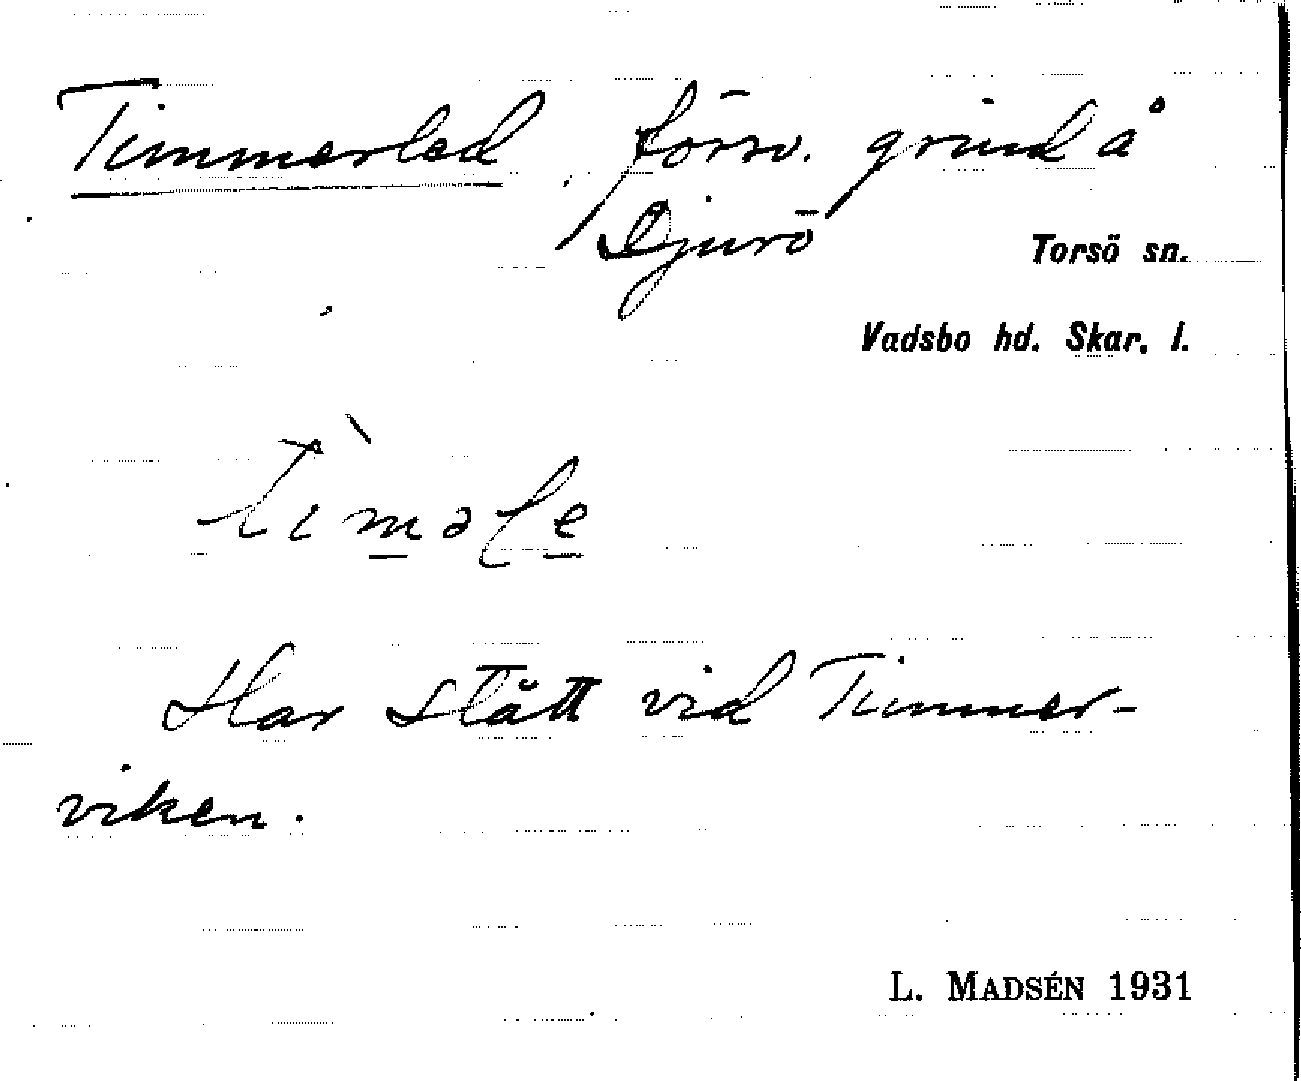 Timmerled, försv. grind å
Djurö
Torsö sn.
Vadsbo hd. Skar. l.
Har stått vid Timmer-
viken.
L. MADSÉN 1931